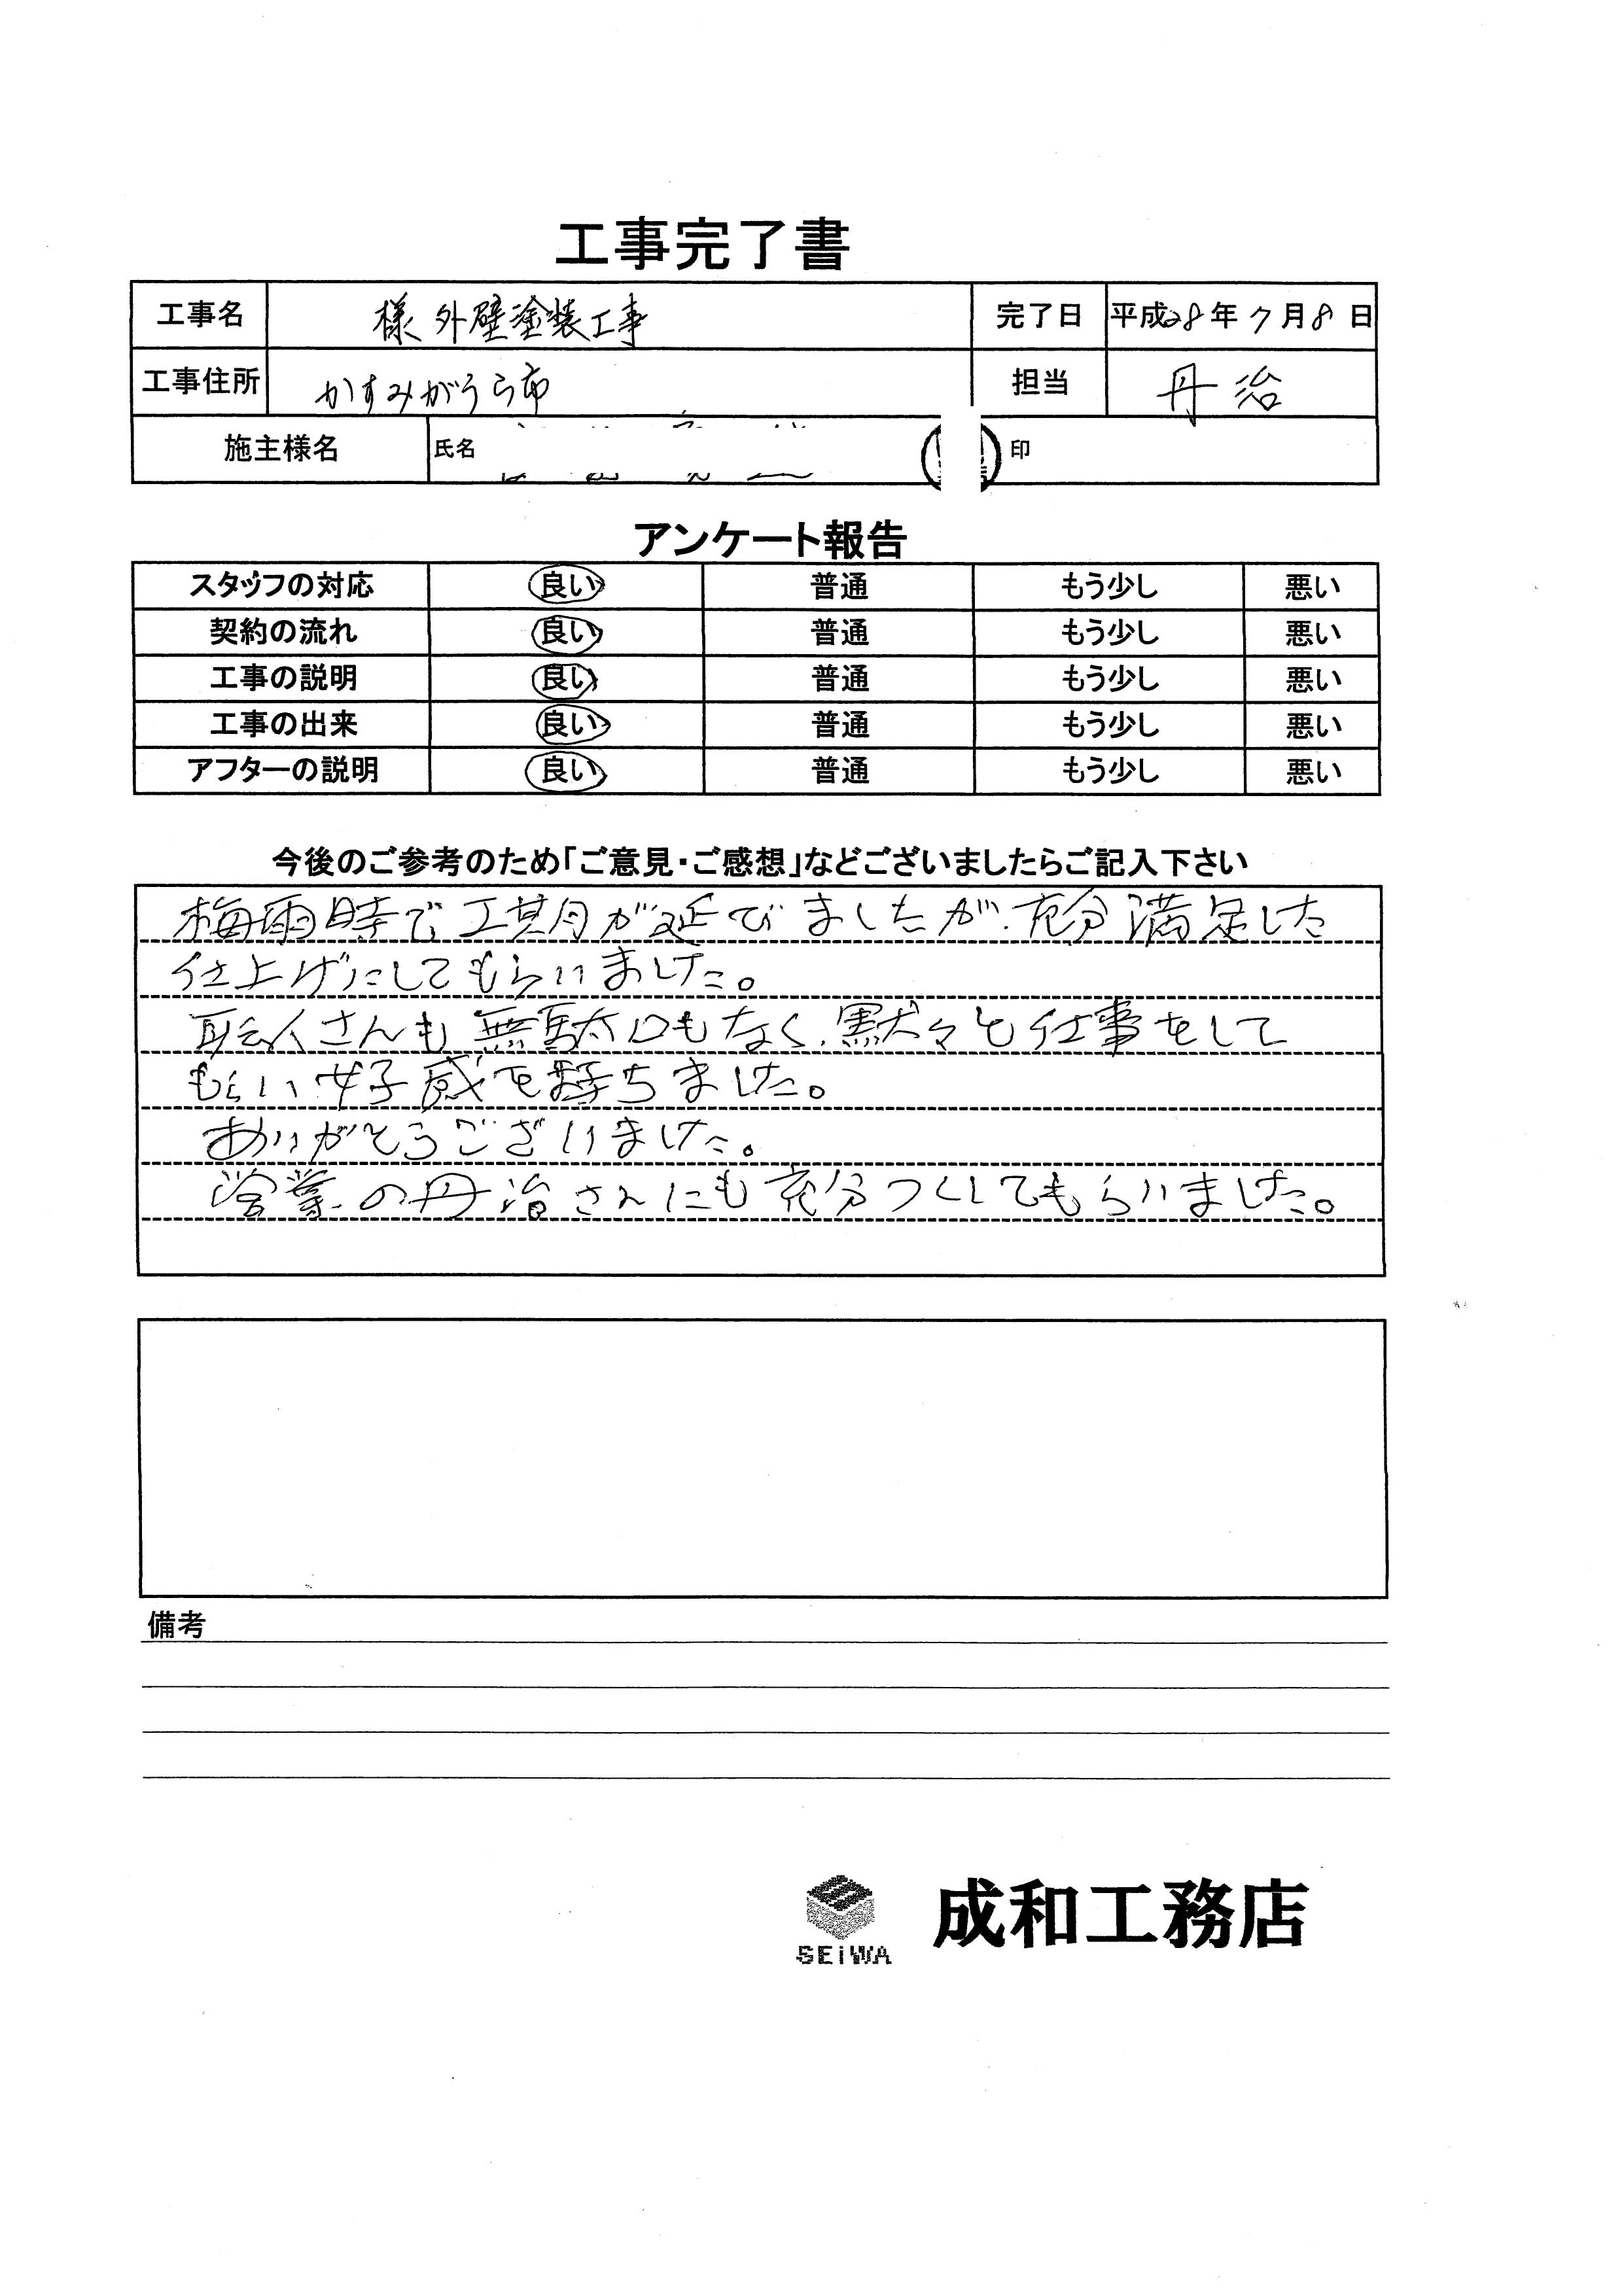 工事完了書
工事名 様 外壁塗装工事 完了日 平成28年7月8日
工事住所 かすみがうら市 担当 丹治
施主様名 氏名 印
アンケート報告
スタッフの対応 良い 普通 もう少し 悪い
契約の流れ 良い 普通 もう少し 悪い
工事の説明 良い 普通 もう少し 悪い
工事の出来 良い 普通 もう少し 悪い
アフターの説明 良い 普通 もう少し 悪い
今後のご参考のため「ご意見・ご感想」などございましたらご記入下さい
梅雨時で工期が延びましたが、充分満足した
仕上げにしてもらいました。
職人さんも無駄口もなく、黙々と仕事をして
もらい好感を持ちました。
ありがとうございました。
営業の丹治さんにも充分つくしてもらいました。
備考
SEiWA 成和工務店